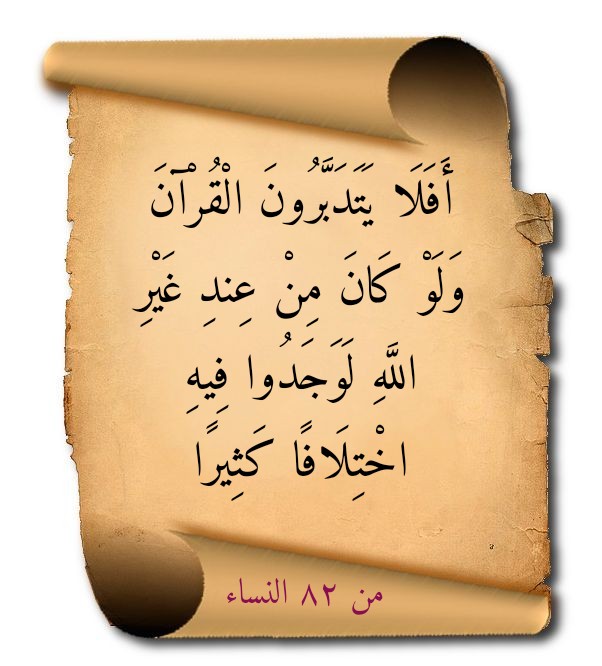 أَفَلَا يَتَدَبَّرُونَ الْقُرْآنَ
وَلَوْ كَانَ مِنْ عِندِ غَيْرِ
اللَّهِ لَوَجَدُوا فِيهِ
اخْتِلَافًا كَثِيرًا
من ٨٢ النساء